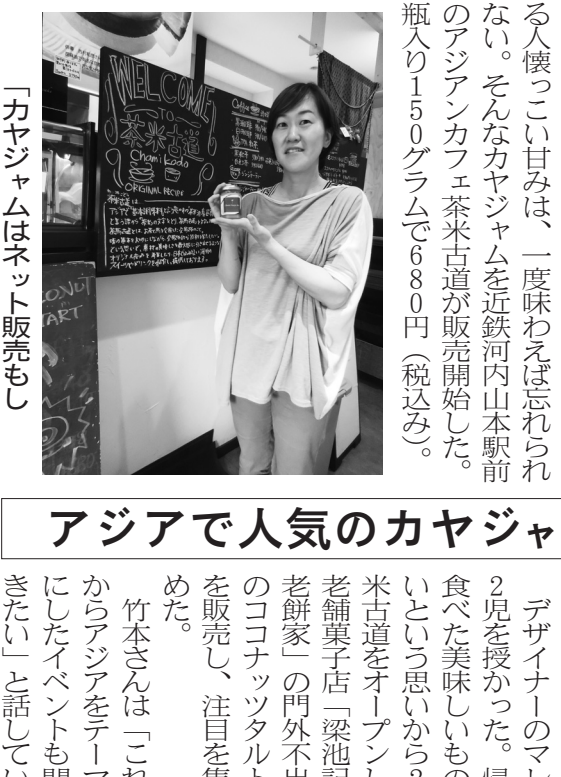 る人懐っこい甘みは、一度味わえば忘れられ
ない。そんなカヤジャムを近鉄河内山本駅前
のアジアンカフェ茶米古道が販売開始した。
瓶入り150グラムで680円（税込み）。
WELCOME
TO
茶米古道
chamikodo
ORIGINAL RECIPE
茶米古道は
Coffee
「カヤジャムはネット販売もし
アジアで人気のカヤジャ
デザイナーのマレ
2児を授かった。帰
食べた美味しいもの
いという思いから2
米古道をオープンし
老舗菓子店「梁池記
老餅家」の門外不出
のココナッツタルト
を販売し、注目を集
めた。
竹本さんは「これ
からアジアをテーマ
にしたイベントも開
きたい」と話してい